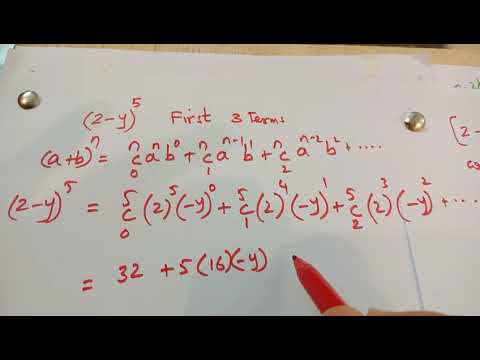 (2-y)⁵ First 3 Terms
(a+b)ⁿ = ⁿC₀ aⁿ b⁰ + ⁿC₁ aⁿ⁻¹ b¹ + ⁿC₂ aⁿ⁻² b² + ....
(2-y)⁵ = ⁵C₀ (2)⁵ (-y)⁰ + ⁵C₁ (2)⁴ (-y)¹ + ⁵C₂ (2)³ (-y)² + ....
= 32 + 5(16)(-y)